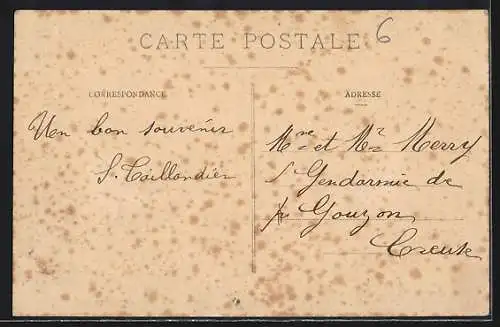 CARTE POSTALE 6
CORRESPONDANCE
Un bon souvenir
S. Taillandier
ADRESSE
Mme et Mr Merry
Gendarmie de
Gouzon
Creuse